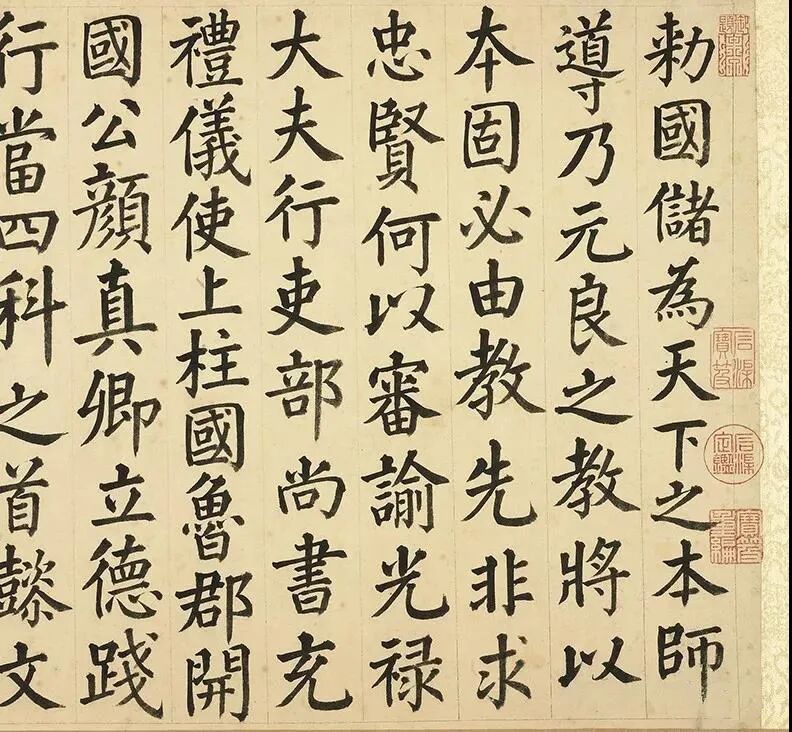 勑國儲為天下之本師
導乃元良之教將以
本固必由教先非求
忠賢何以審諭光禄
大夫行吏部尚書充
禮儀使上柱國魯郡開
國公顏真卿立德踐
行當四科之首懿文
石渠寶笈
石渠定鑑
寶笈重編